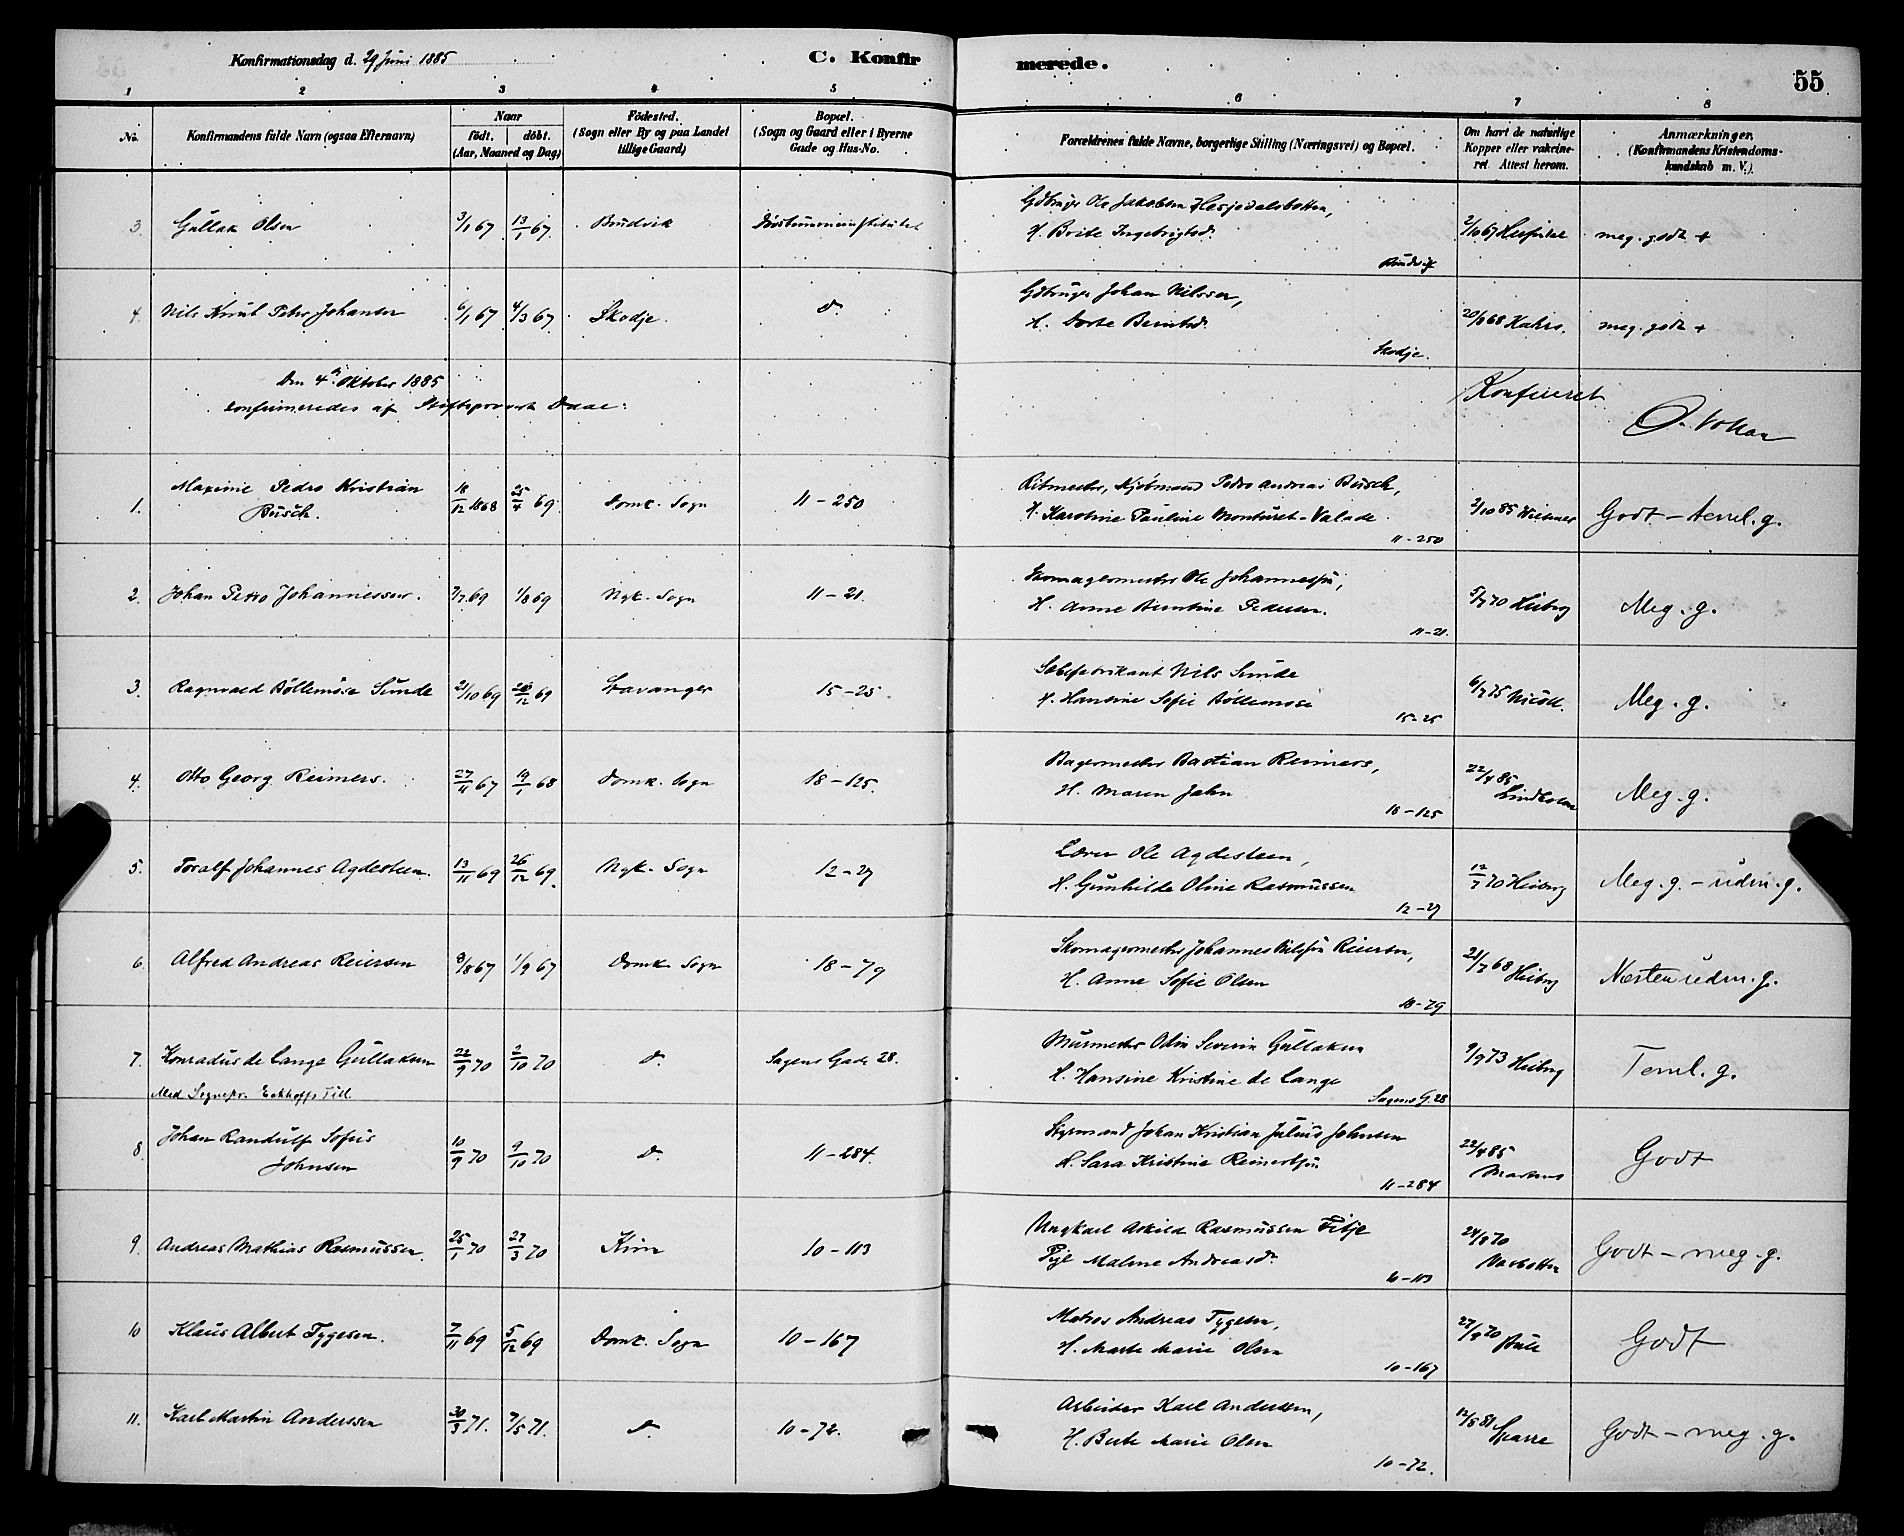 Konfirmationsdag d. 29 Juni 1885
C. Konfirmerede.
55
1 2 3 4 5 6 7 8
No.
Konfirmandens fulde Navn (ogsaa Efternavn)
Naar
født. døbt.
(Aar, Maaned og Dag)
Fødested.
(Sogn eller By og paa Landet
tillige Gaard)
Bopæl.
(Sogn og Gaard eller i Byerne
Gade og Hus-No.
Forældrenes fulde Navne, borgerlige Stilling (Næringsvei) og Bopæl.
Om havt de naturlige
Kopper eller vakcine-
ret. Attest herom.
Anmærkninger.
(Konfirmandens Kristendoms-
kundskab m. V.)
3. Gullak Olsen 3/1 67 13/1 67 Brudvik Døvstummeinstitutet
Gdbruger Ole Jakobsen Hesjedalsbotten,
H. Brite Ingebrigtsd.
Brudvik
2/10 67 meg. godt +
4. Nils Knut Peter Johansen 6/1 67 4/3 67 Skodje do
Gdbruger Johan Nilssen,
H. Dorte Berntsd.
Skodje.
20/8 68 Kahrs. meg. godt +
Den 4de Oktober 1885
konfirmeredes af Stiftsprovst Daae:
Konfereret
1. Maximi Pedro Kristian
Busch. 18/12 1868 25/4 69 Domk. Sogn 11-250
Ritmester, Kjøbmand Pedro Andreas Busch,
H. Karoline Pauline Monturet-Valade
11-250
2/10 85 Godt - teml. g.
2. Johan Petro Johannessen. 7/7 69 1/8 69 Nyk. Sogn 11-21.
Skomagermester Ole Johannessen,
H. Anne Berntine Pedersen.
11-21.
5/7 70 Heiberg Meg. g.
3. Ragnvald Bøllemose Sunde 21/10 69 28/12 69 Stavanger 15-25.
Sæbefabrikant Nils Sunde
H. Hansine Sofie Bøllemose
15-25
6/7 75 Meg. g.
4. Otto Georg Reimers. 27/11 67 19/1 68 Domk. Sogn 18-125.
Bagermester Bastian Reimers,
H. Maren Jahn
18-125
22/4 85
Lindholm Meg. g.
5. Toralf Johannes Agdesteen. 13/11 69 26/12 69. Nyk. Sogn 12-27
Lærer Ole Agdesteen,
H. Gunhilde Oline Rasmussen
12-27
12/7 70 Heiberg Meg. g. - udm. g.
6. Alfred Andreas Reiersen 8/8 67 1/9 67 Domk. Sogn 18-79
Skomagermester Johannes Nilssen Reiersen,
H. Anne Sofie Olsen
18-79
21/7 68 Heiberg Næsten udm. g.
7. Konradus de Lange Gullaksen 22/9 70 2/10 70 do Sagens Gade 28.
Med Sognepr. Eckhoffs Till.
Murmester Odin Severin Gullaksen
H. Hansine Kristine de Lange
Sagens G. 28
9/9 73 Heiberg Teml. g.
8. Johan Randulf Sofus
Johnsen 10/9 70 9/10 70 do. 11-284.
Styrmand Johan Kristian Julius Johnsen
H. Sara Kristine Reinertsen
11-284
22/4 85
Martens Godt
9. Andreas Mathias Rasmussen. 25/1 70 27/3 70 Kinn 10-113
Ungkarl Askild Rasmussen Fitje
Pige Malene Andreasd.
10-113
24/8 70 Godt - meg. g.
10 Klaus Albert Tygesen. 7/11 69 5/12 69 Domk. Sogn 10-167
Matros Andreas Tygesen,
H. Marte Marie Olsen
10-167
27/9 70 Godt
11. Karl Martin Anderssen 30/3 71. 7/5 71. do. 10-72.
Arbeider Karl Anderssen,
H. Berte Marie Olsen
10-72.
12/8 81 Sparre Godt - meg. g.